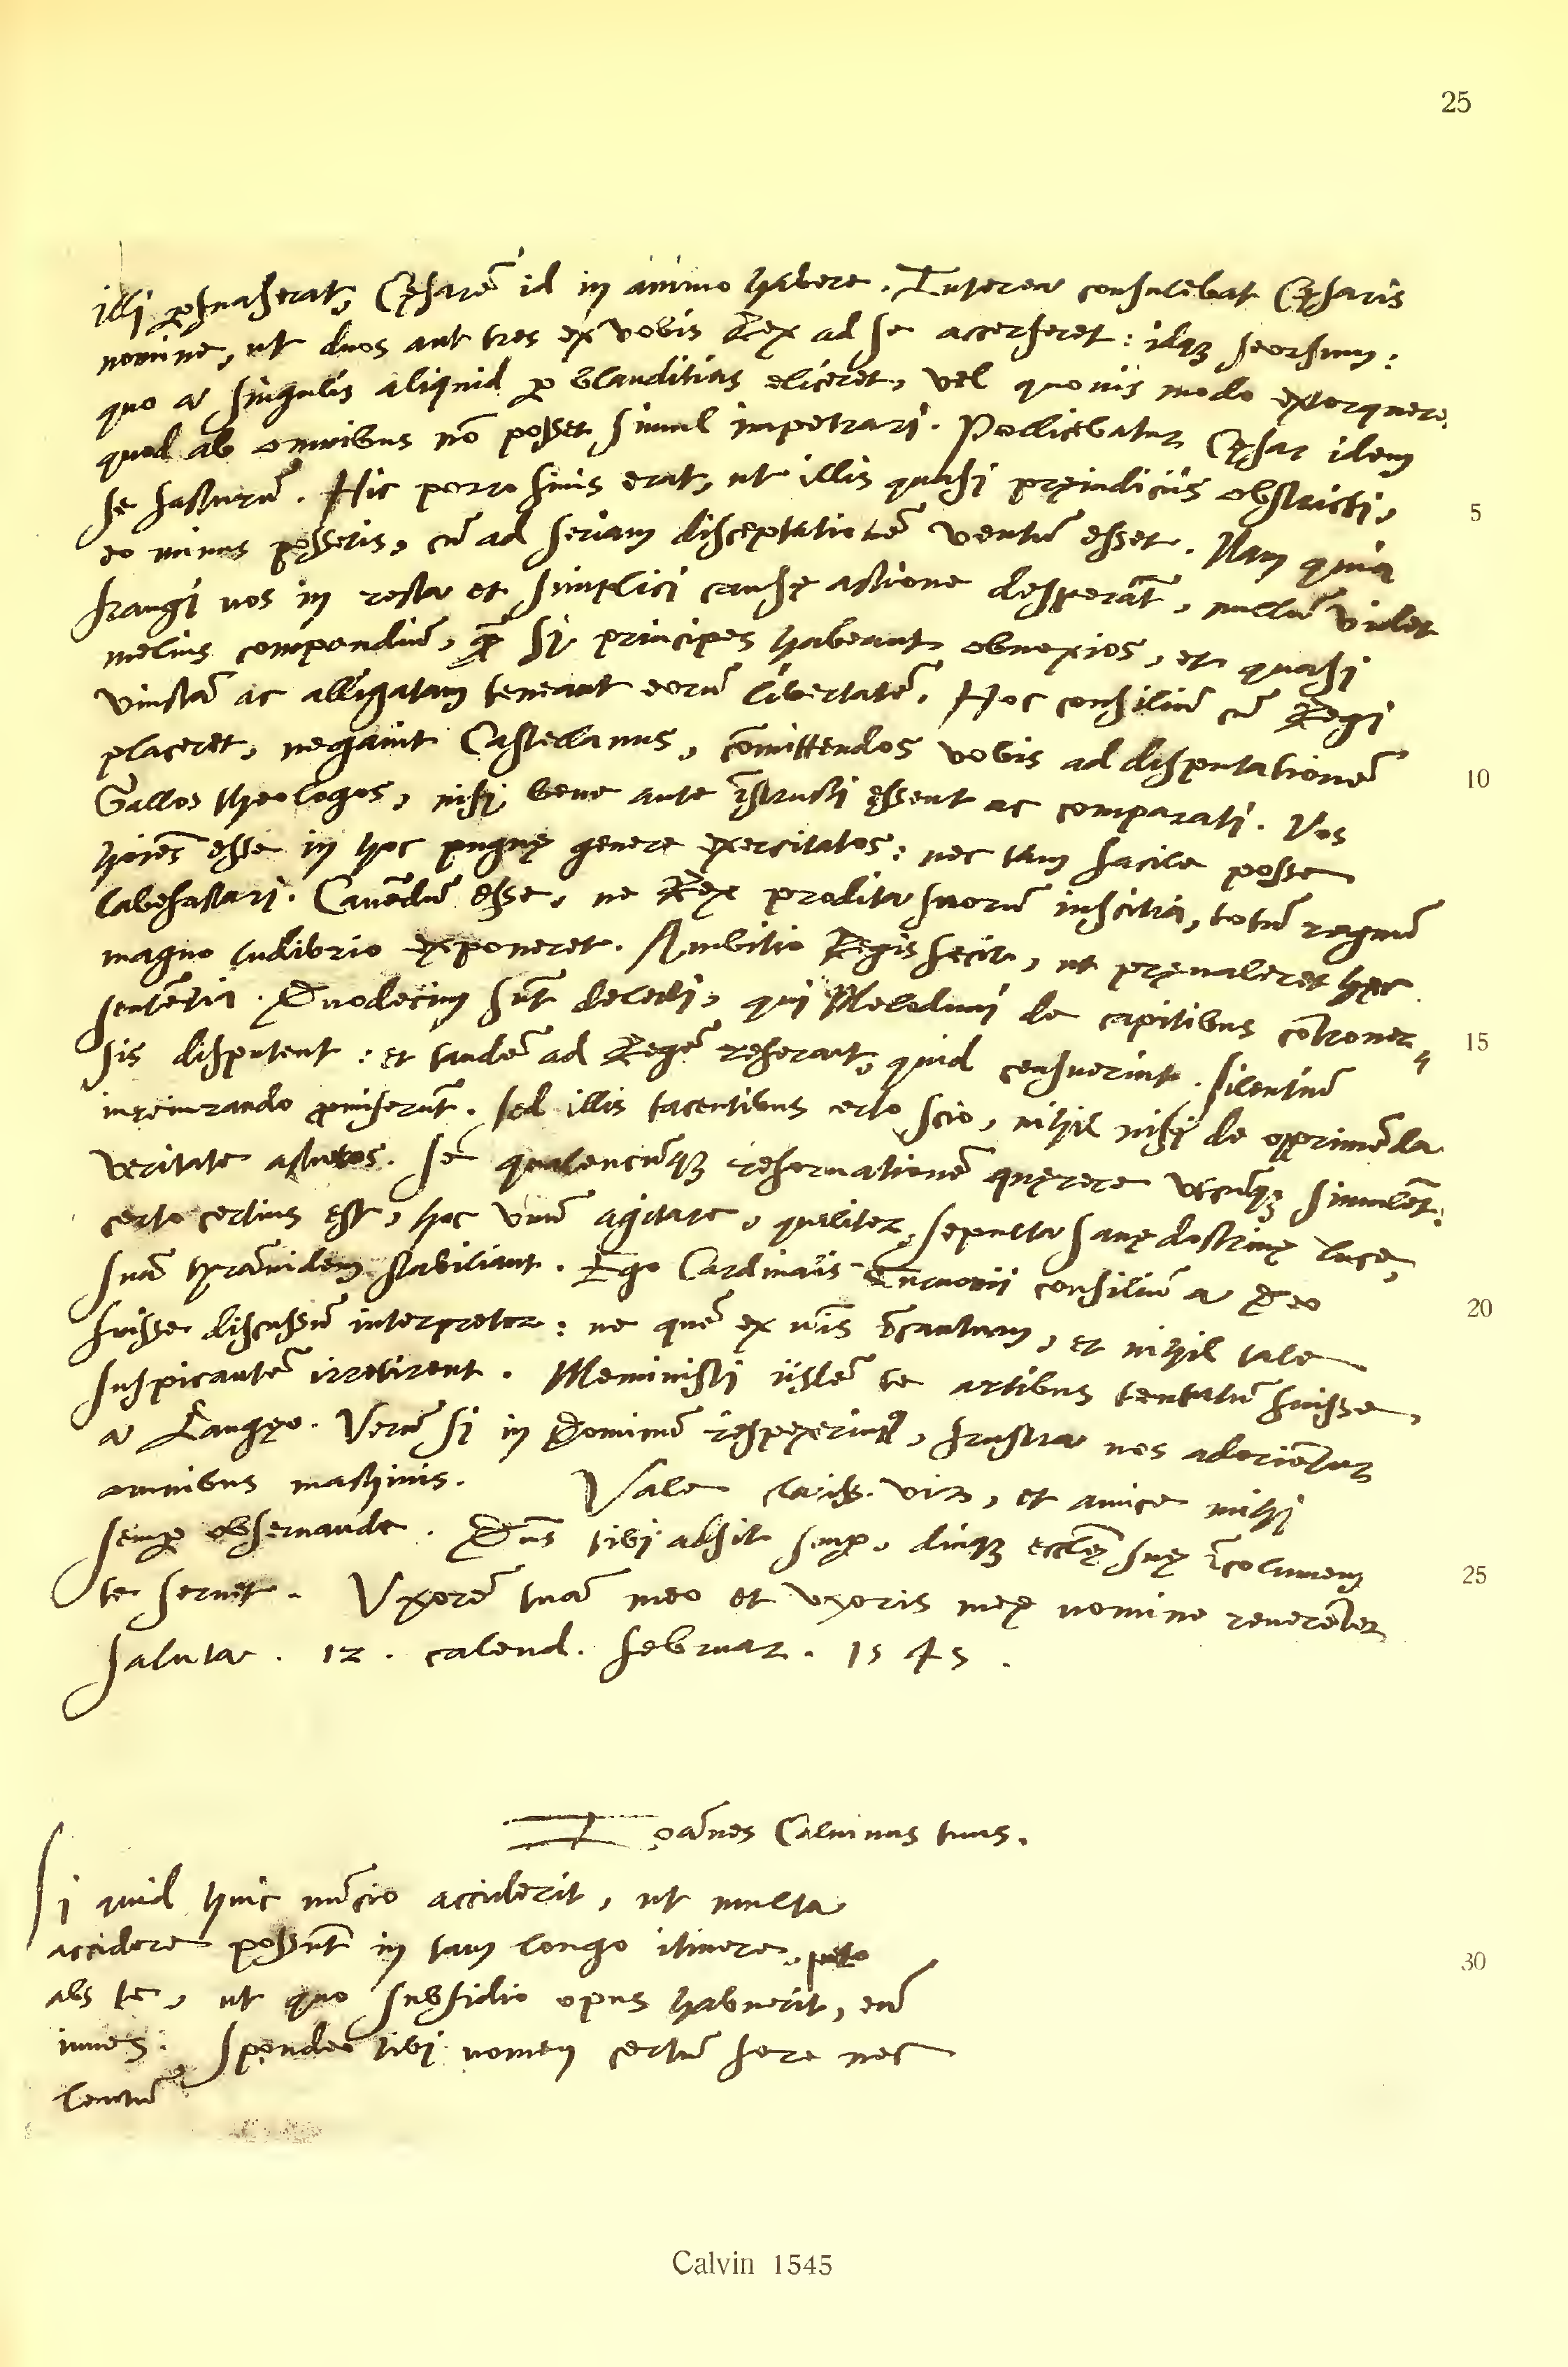 25
illi ꝑsuaserat, Cęsarē id in animo habere. Interea consulebat Cęsaris
nomine, ut duos aut tres ex vobis Rex ad se accerseret: idqꝫ seorsum:
quo a singulis aliquid ꝑ blanditias eliceret, vel quovis modo extorqueret,
quod ab omnibus nō posset simul impetrari. Pollicebatur Cęsar idem
se facturū. Hic porro finis erat, ut illis quasi pręiudiciis obstricti,
5
eo minus possetis, cū ad seriam disceptationē ventū esset. Nam quia
frangi vos in recta et simplici causę actione desperāt, nullū videt
melius compendiū, quā si principes habeant obnoxios, et quasi
vinctā ac alligatam teneant eorū libertatē. Hoc consiliū cū Regi
placeret, negavit Castellanus, cōmittendos vobis ad disputationē
10
Gallos theologos, nisi bene ante īstructi essent ac comparati. Vos
hoīes esse in hoc pugnę genere exercitatos: nec tam facile posse
labefactari. Cavēdū esse, ne Rex prodita suorū inscitia, totū regnū
magno ludibrio exponeret. Ambitio Regis fecit, ut pręvaleret hęc
sentētia. Duodecim sūt delecti, qui Meloduni de capitibus cōtrover
15
sis disputent: et tandē ad Regē referant, quid censuerint. Silentiū
iureiurando ꝓmiserūt. Sed illis tacentibus certo scio, nihil nisi de opprimēda
veritate
Sē qualencūqꝫ reformationē quęrere utcūqꝫ simulēt:
certo certius est, hoc unū agitare, qualiter, sepulta sanę doctrinę luce,
suā tyrānidem stabiliant. Ego Cardinalis Turnonii consiliū a Deo
20
fuisse discussū interpretor: ne quē ex vr̄is īcautum, et nihil tale
suspicantē irretirent. Meministi iisdē te artibus tentatū fuisse,
a Langęo. Verū si in Dominū respexerimus, frustra nos adoriētur
omnibus machinis. Vale clariss. vir, et amice mihi
semꝑ observande. Dn̄s tibi adsit semꝑ, diuqꝫ ecclę̄ suę īcolumem
25
te servet. Uxorē tuā meo et uxoris meę nomine reverēter
saluta. 12. calend. Februar. 1545.
Ioānes Calvinus tuus.
Si quid huic nūcio acciderit, ut multa
accidere possūt in tam longo itinere, peto
30
abs te, ut quo subsidio opus habuerit, eū
iuves. Spondeo tibi nomen certū fore nec
lentū
Calvin 1545